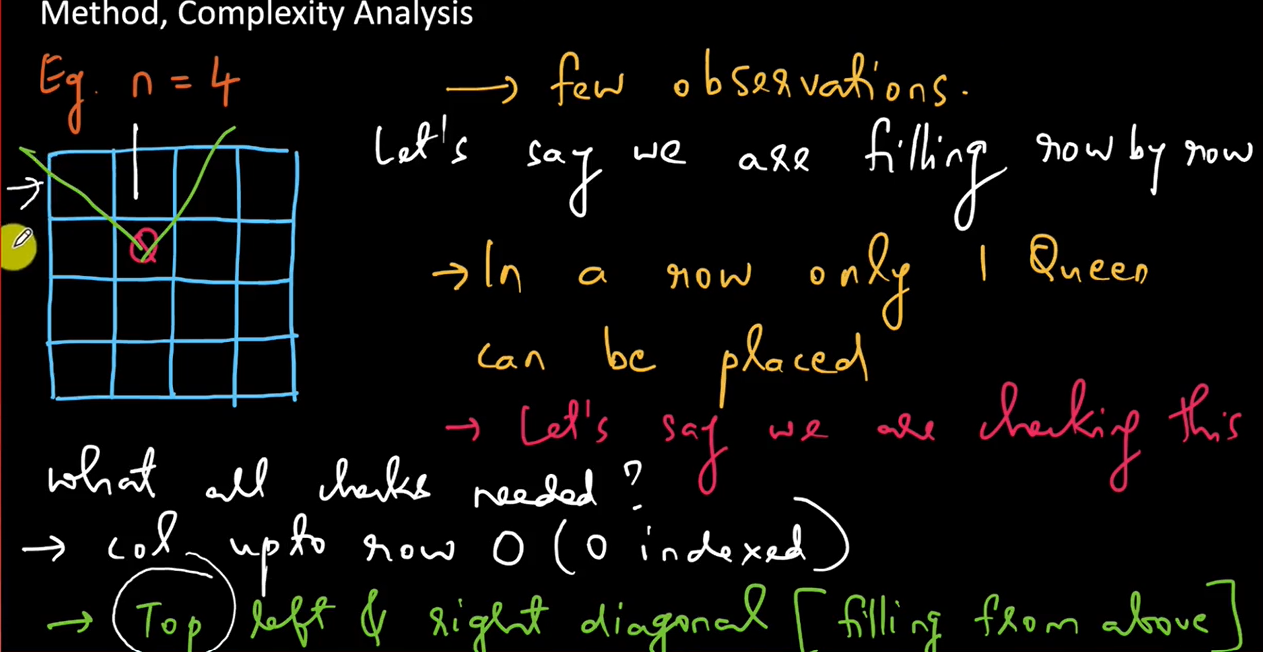 Method, Complexity Analysis
Eg. n = 4
→ few observations.
Let's say we are filling row by row
→ In a row only 1 Queen
can be placed
→ Let's say we are checking this
Q
what all checks needed?
→ col upto row 0 (0 indexed)
→ Top left & right diagonal [filling from above]